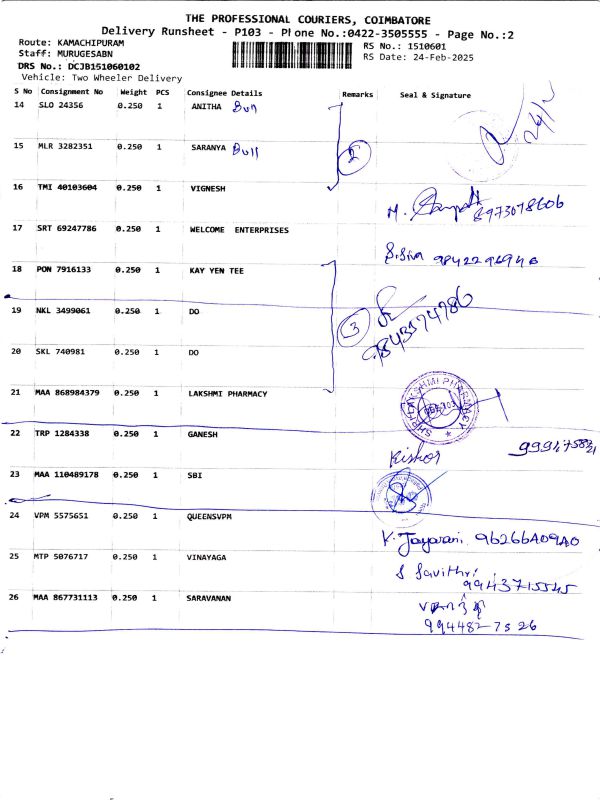 THE PROFESSIONAL COURIERS, COIMBATORE
Delivery Runsheet - P103 - Phone No.:0422-3505555 - Page No.:2
Route: KAMACHIPURAM
RS No.: 1510601
Staff: MURUGESABN
RS Date: 24-Feb-2025
DRS No.: DCJB151060102
Vehicle: Two Wheeler Delivery
S No Consignment No Weight PCS Consignee Details Remarks Seal & Signature
14 SLO 24356 0.250 1 ANITHA Bull
24/2
15 MLR 3282351 0.250 1 SARANYA Bull
2
16 TMI 40103604 0.250 1 VIGNESH
8973078606
17 SRT 69247786 0.250 1 WELCOME ENTERPRISES
S.Siva
18 PON 7916133 0.250 1 KAY YEN TEE
19 NKL 3499061 0.250 1 DO
3
9843174786
20 SKL 740981 0.250 1 DO
21 MAA 868984379 0.250 1 LAKSHMI PHARMACY
SHRI LAKSHMI PHARMACY
22 TRP 1284338 0.250 1 GANESH
Kishor
23 MAA 110489178 0.250 1 SBI
24 VPM 5575651 0.250 1 QUEENSVPM
V. Jayarani
25 MTP 5076717 0.250 1 VINAYAGA
S Savithri
9943715545
26 MAA 867731113 0.250 1 SARAVANAN
994482 7526